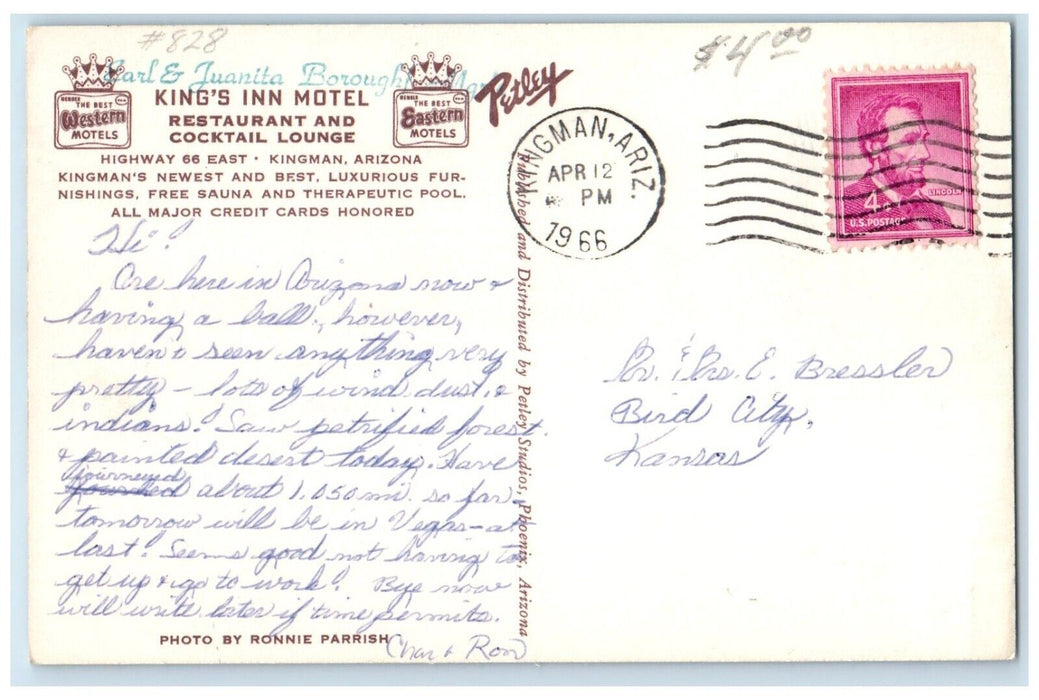 #828
$4.00
Earl & Juanita Borough
KING'S INN MOTEL
RESTAURANT AND
COCKTAIL LOUNGE
MEMBER THE BEST Western MOTELS
MEMBER THE BEST Eastern MOTELS
HIGHWAY 66 EAST · KINGMAN, ARIZONA
KINGMAN'S NEWEST AND BEST, LUXURIOUS FUR-
NISHINGS, FREE SAUNA AND THERAPEUTIC POOL.
ALL MAJOR CREDIT CARDS HONORED
Petley
KINGMAN, ARIZ.
APR 12
PM
1966
4¢
LINCOLN
U.S. POSTAGE
Hi!
Are here in Arizona now &
having a ball, however,
haven't seen anything very
pretty - lots of wind dust, &
indians! Saw petrified forest
& painted desert today. Have
journeyed about 1,050 mi. so far-
tomorrow will be in Vegas - at
last! Seems good not having to
get up & go to work! Bye now
will write later if time permits.
Char & Ron
PHOTO BY RONNIE PARRISH
Published and Distributed by Petley Studios, Phoenix, Arizona
Mr. & Mrs. E. Bressler
Bird City,
Kansas